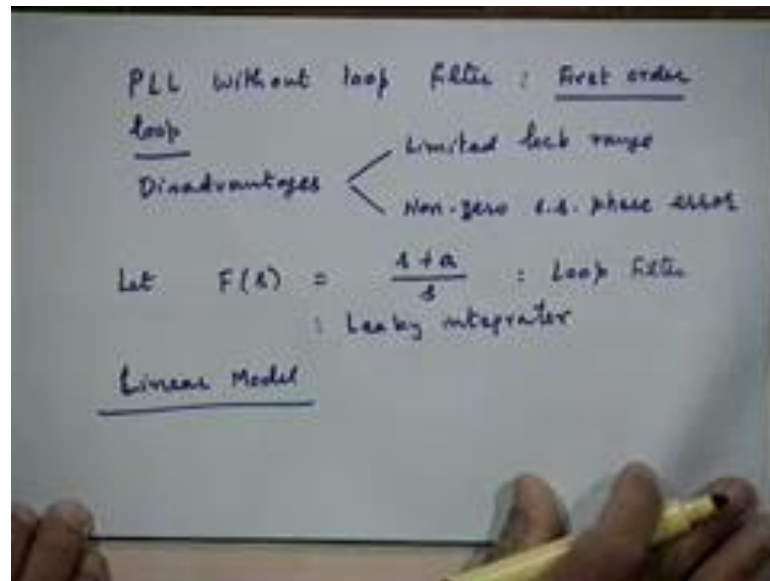 PLL without loop filter : First order
loop
Disadvantages
Limited lock range
Non-zero s.s. phase error
Let F(s) = s + a / s : Loop filter
: Leaky integrator
Linear Model